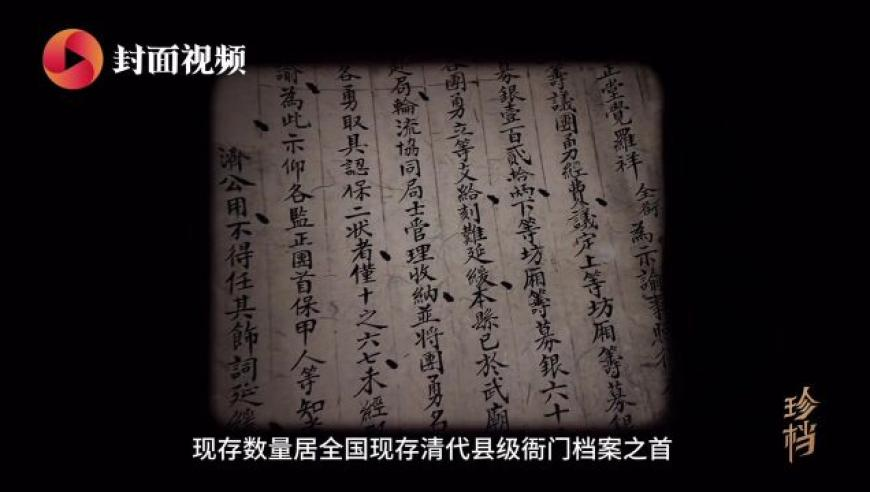 封面视频
正堂覺羅祥 全銜 為示諭事照得
籌議團勇經費議定上等坊廂籌募銀
募銀壹百貳拾兩下等坊廂籌募銀六十
各團勇立等支給刻難延緩本縣已於武廟
赴局輪流協同局士管理收納並將團勇名
各勇取具認保二狀者僅十之六七未經
諭為此示仰各監正團首保甲人等知
濟公用不得任其飾詞延緩
珍档
现存数量居全国现存清代县级衙门档案之首